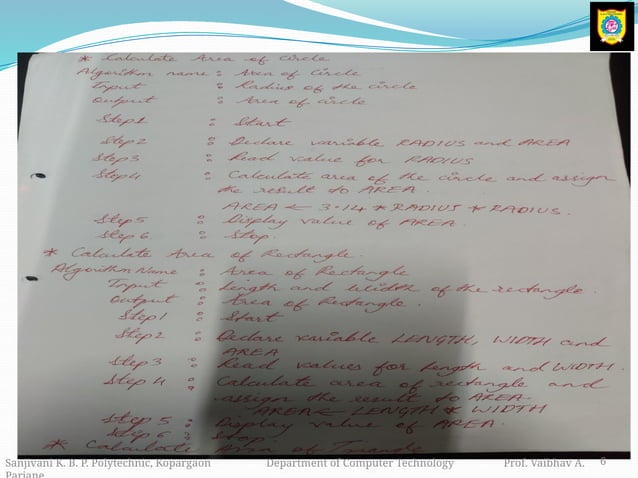 * Calculate Area of Circle
Algorithm name : Area of Circle
Input : Radius of the circle
Output : Area of circle
Step1 : Start
Step2 : Declare variable RADIUS and AREA
Step3 : Read value for RADIUS
Step4 : Calculate area of the circle and assign
the result to AREA.
AREA ← 3.14 * RADIUS * RADIUS.
Step5 : Display value of AREA.
Step 6 : Stop.
* Calculate Area of Rectangle.
Algorithm Name : Area of Rectangle
Input : Length and Width of the rectangle.
Output : Area of Rectangle.
Step1 : Start
Step2 : Declare variable LENGTH, WIDTH and
AREA
Step3 : Read values for Length and WIDTH.
Step 4 : Calculate area of rectangle and
assign the result to AREA.
AREA ← LENGTH * WIDTH
Step 5 : Display value of AREA.
Step 6 : Stop
* Calculate Area of Triangle
Sanjivani K. B. P. Polytechnic, Kopargaon Department of Computer Technology Prof. Vaibhav A. 6
Parjane